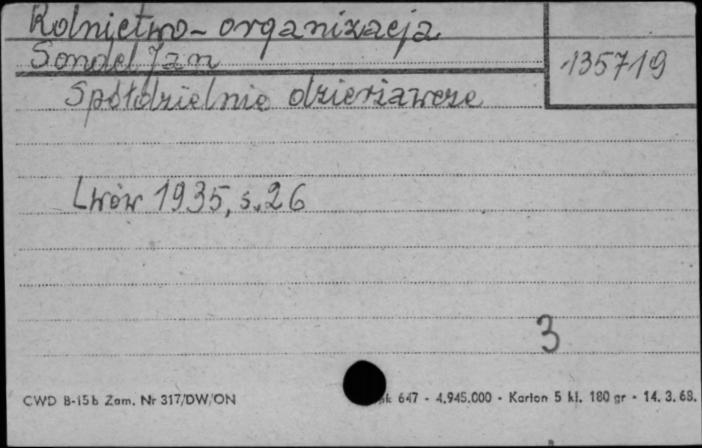 Rolnictwo - organizacja
Sondel Jan
135719
Spółdzielnie dzierżawcze
Lwów 1935, s. 26
3
CWD B-15b Zam. Nr 317/DW/ON
647 - 4.945.000 - Karton 5 kl. 180 gr - 14. 3. 68.